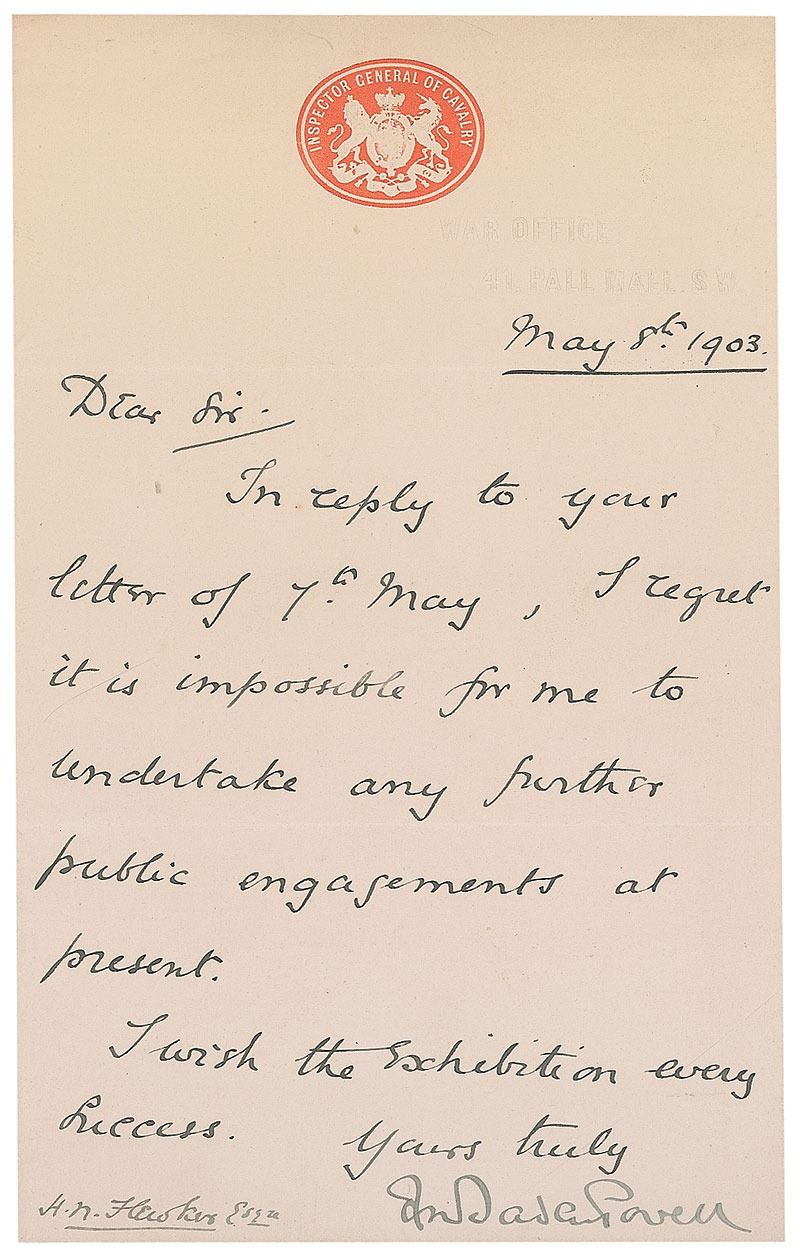 INSPECTOR GENERAL OF CAVALRY
WAR OFFICE
41, PALL MALL. S.W.
May 8th 1903.
Dear Sir.
In reply to your
letter of 7th May, I regret
it is impossible for me to
undertake any further
public engagements at
present.
I wish the Exhibition every
Success.
Yours truly
Baden Powell
H. N. Esqr